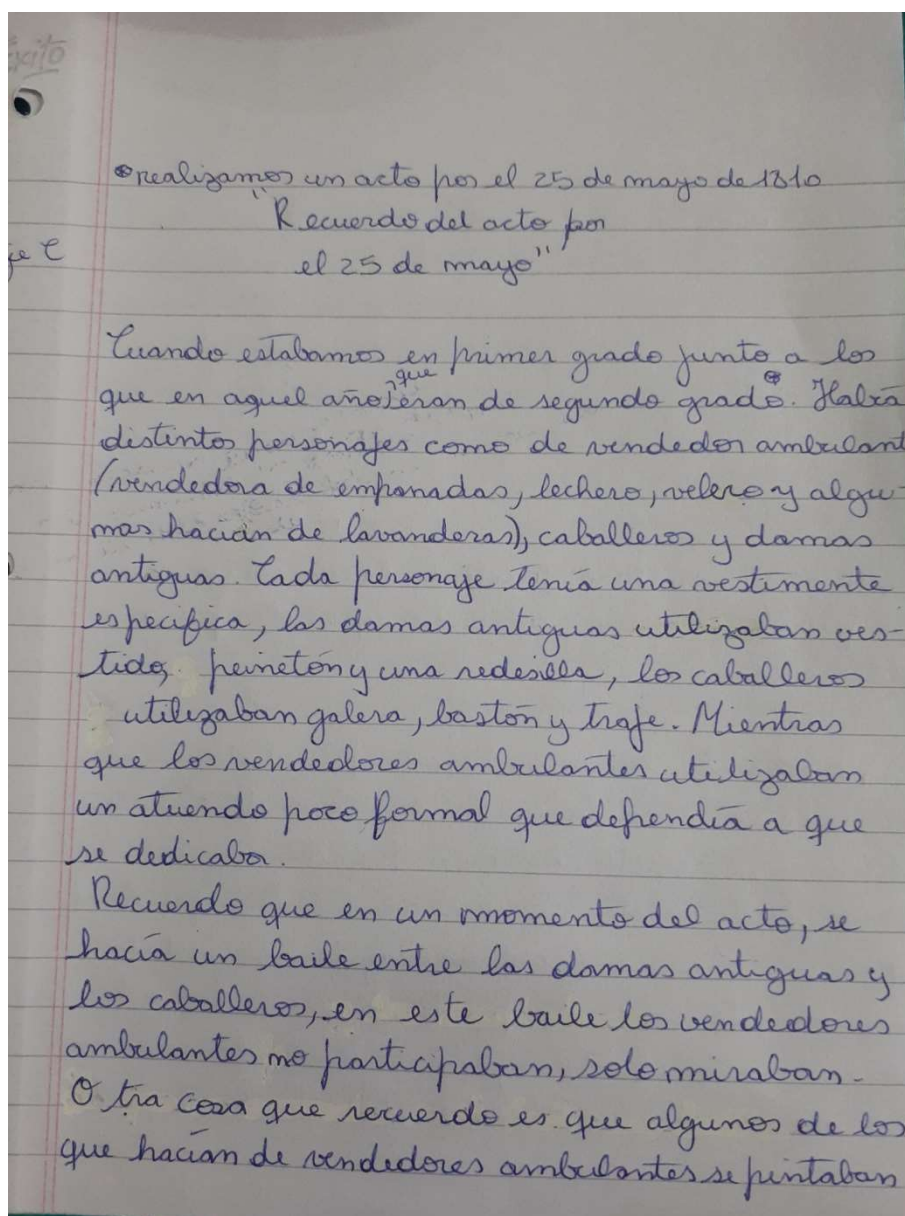 Éxito
je C
realizamos un acto por el 25 de mayo de 1810
"Recuerdo del acto por
el 25 de mayo"
Cuando estabamos en primer grado junto a los
que
que en aquel año eran de segundo grado. Había
distintos personajes como de vendedor ambulant
(vendedora de empanadas, lechero, velero y algu-
nas hacían de lavanderas), caballeros y damas
antiguas. Cada personaje tenía una vestimente
especifica, las damas antiguas utilizaban ves-
tido, peinetón y una redesilla, los caballeros
utilizaban galera, bastón y traje. Mientras
que los vendedores ambulantes utilizaban
un atuendo poco formal que dependía a que
se dedicaba.
Recuerdo que en un momento del acto, se
hacía un baile entre las damas antiguas y
los caballeros, en este baile los vendedores
ambulantes no participaban, solo miraban.
Otra cosa que recuerdo es que algunos de los
que hacían de vendedores ambulantes se pintaban